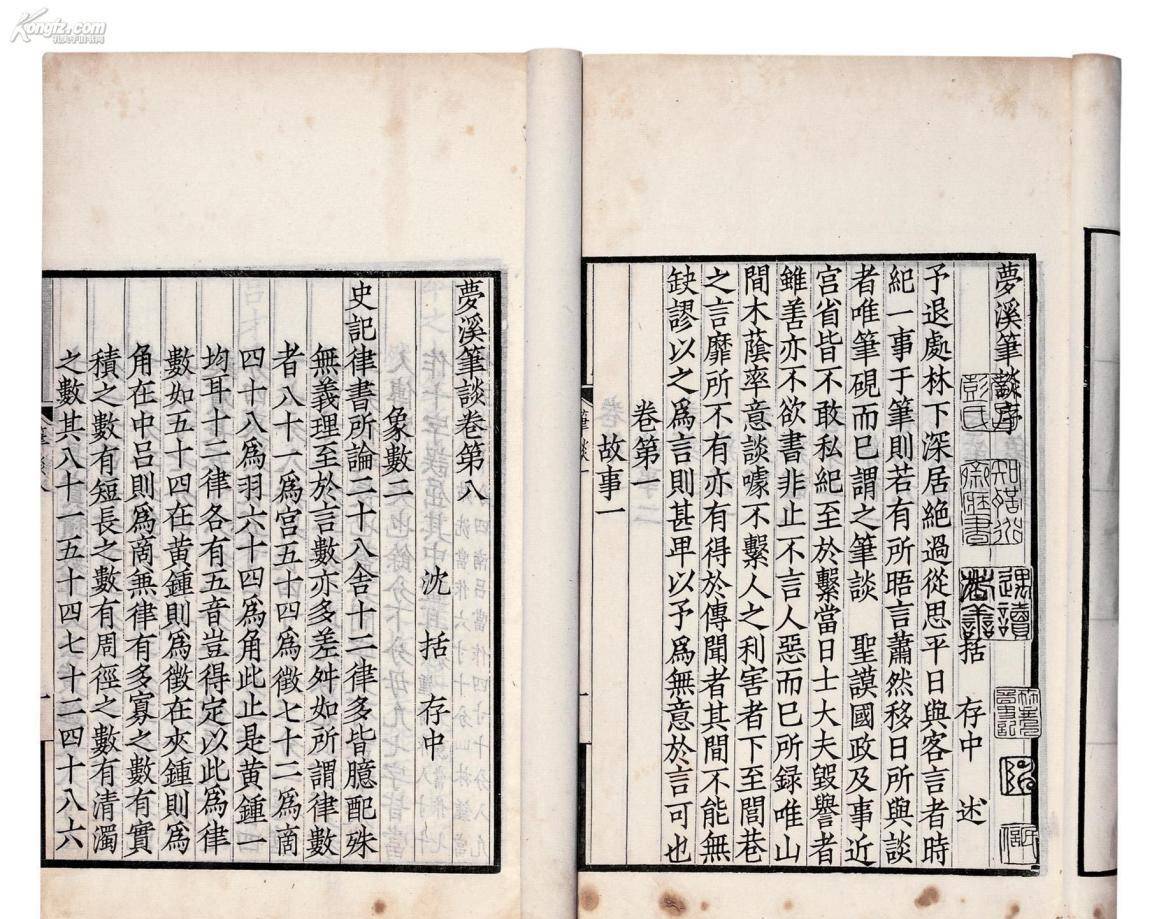 Kongfz.com
孔夫子旧书网
夢溪筆談序
括 存中 述
予退處林下深居絕過從思平日與客言者時
紀一事于筆則若有所晤言蕭然移日所與談
者唯筆硯而已謂之筆談 聖謨國政及事近
宮省皆不敢私紀至於繫當日士大夫毀譽者
雖善亦不欲書非止不言人惡而已所録唯山
間木蔭率意談噱不繫人之利害者下至閭巷
之言靡所不有亦有得於傳聞者其間不能無
缺謬以之爲言則甚卑以予爲無意於言可也
卷第一
故事一
夢溪筆談卷第八
沈 括 存中
象數二
史記律書所論二十八舍十二律多皆臆配殊
無義理至於言數亦多差舛如所謂律數
者八十一爲宮五十四爲徵七十二爲商
四十八爲羽六十四爲角此止是黃鍾一
均耳十二律各有五音豈得定以此爲律
數如五十四在黃鍾則爲徵在夾鍾則爲
角在中呂則爲商兼律有多寡之數有實
積之數有短長之數有周徑之數有清濁
之數其八十一五十四七十二四十八六